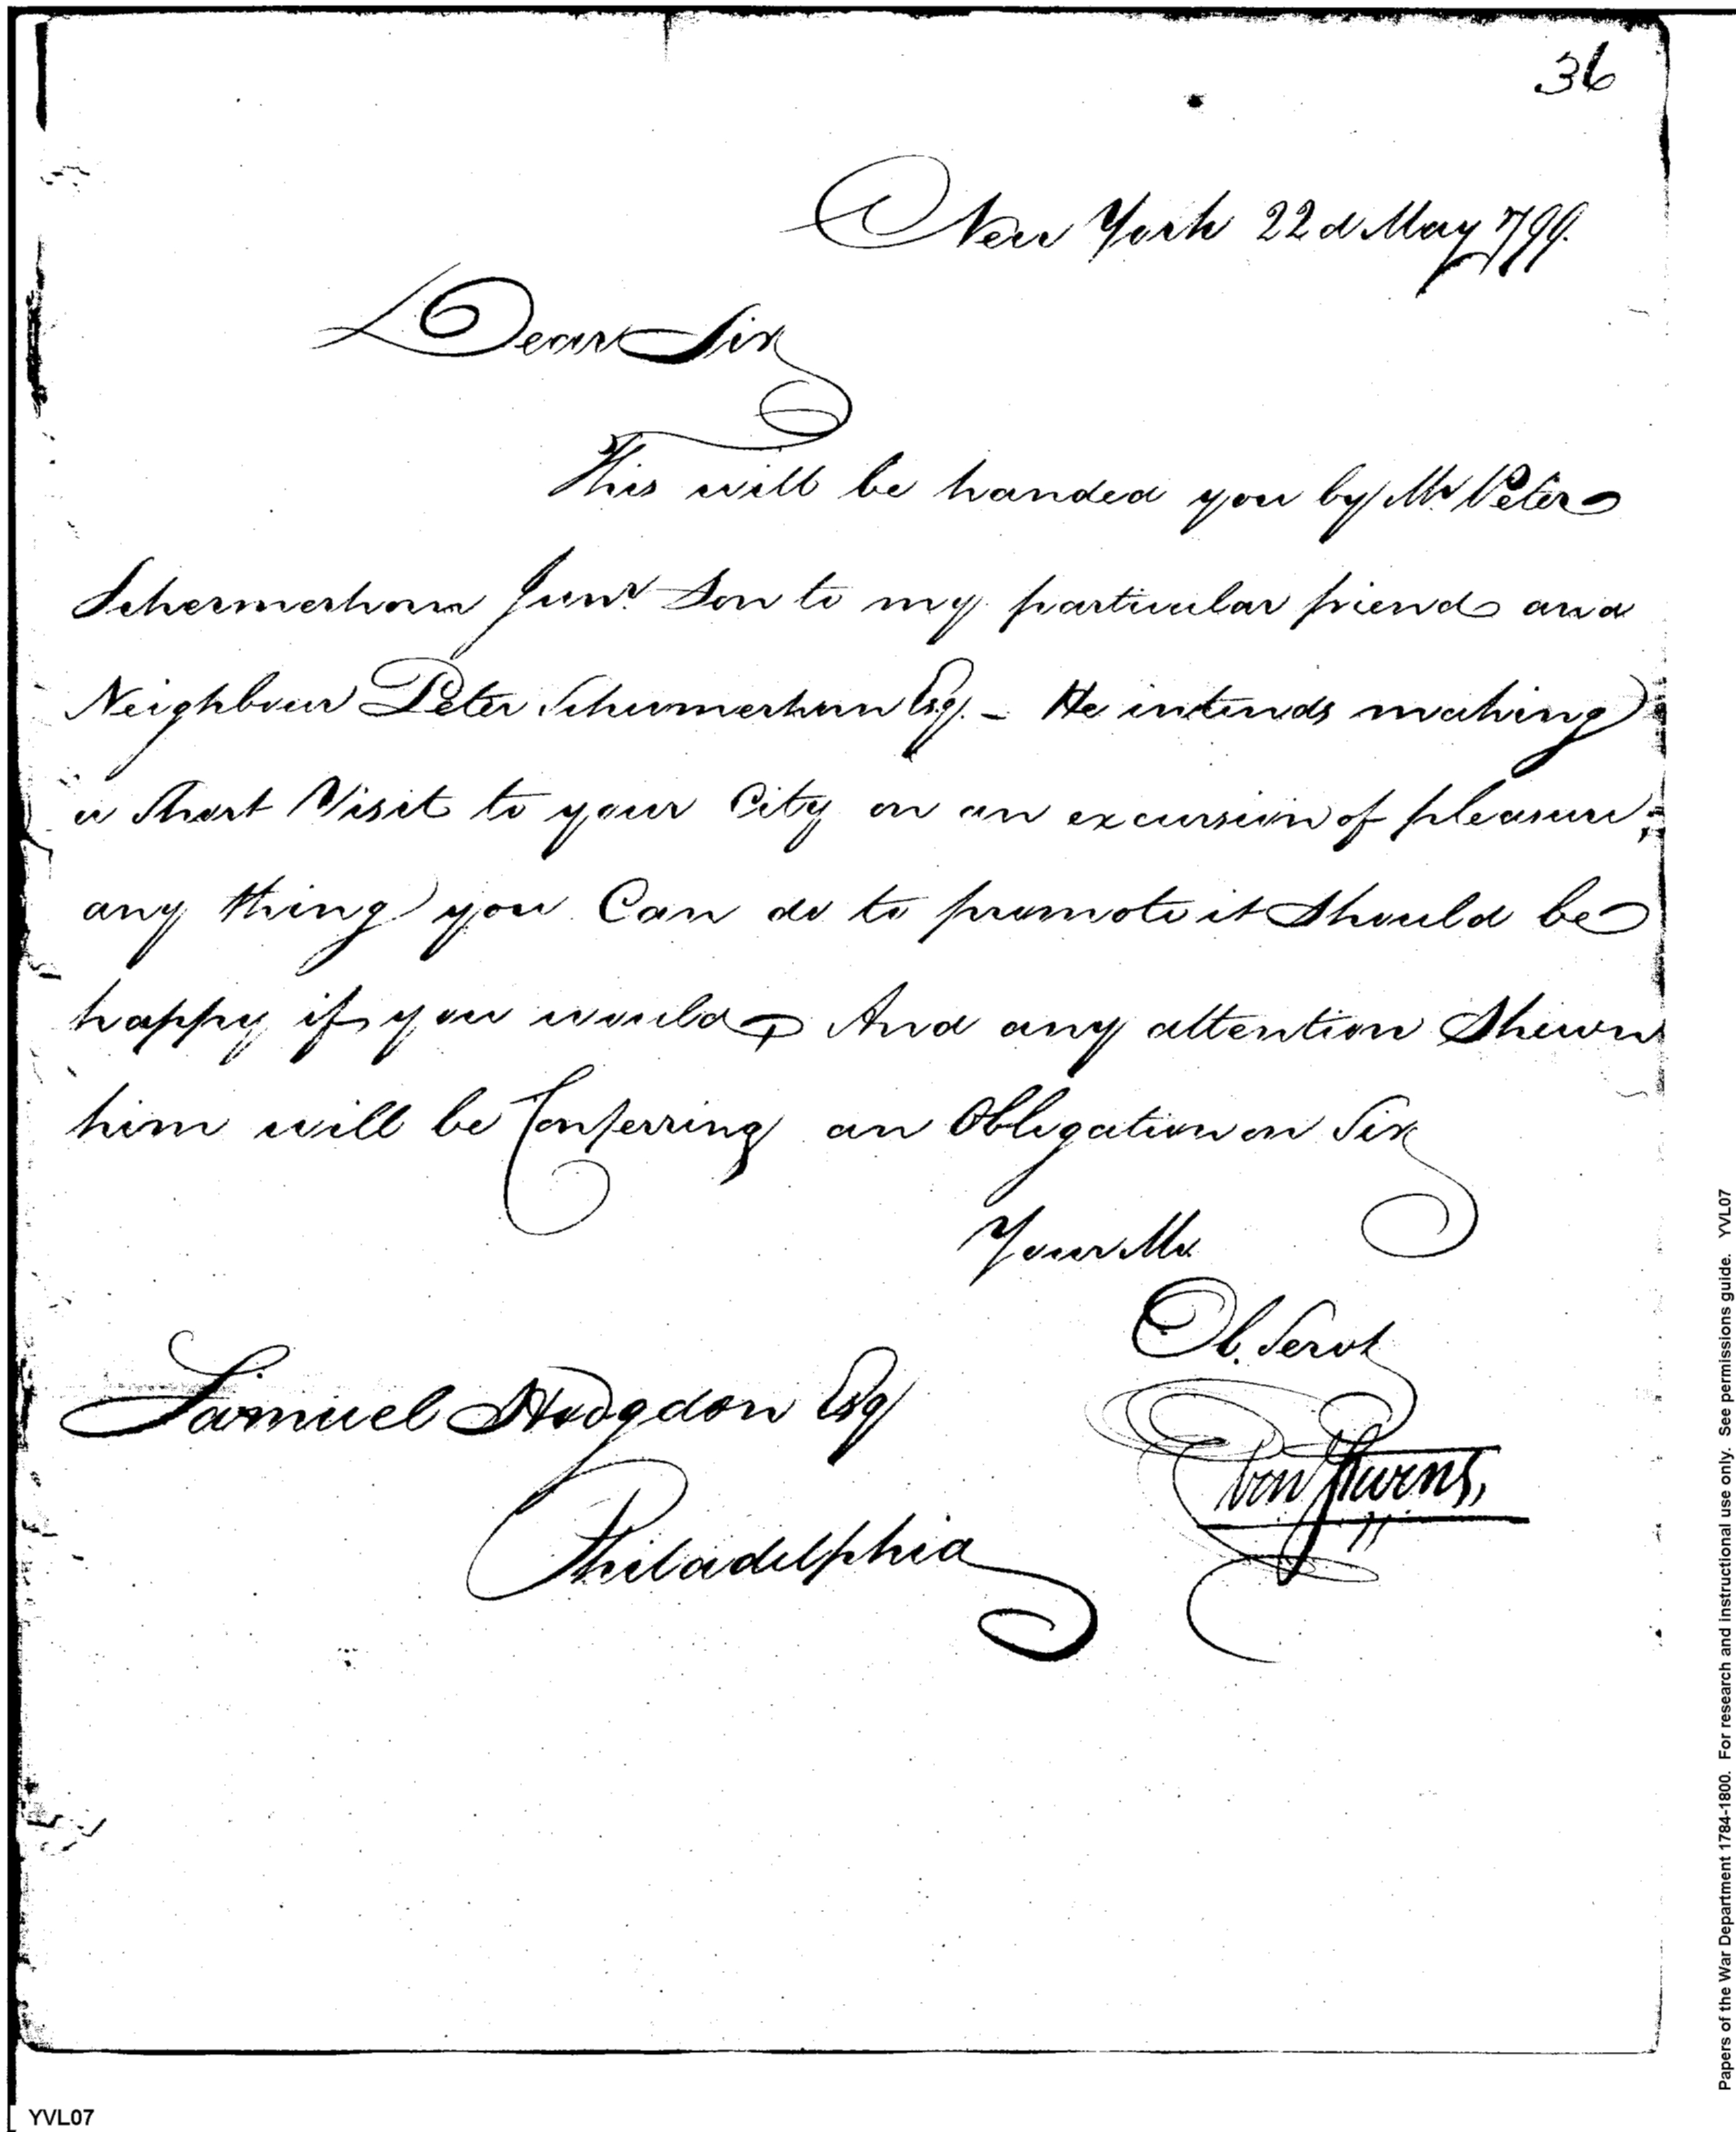 36
New York 22d May 1799.
Dear Sir
This will be handed you by Mr. Peter
Schermerhorn Junr. Son to my particular friend and
Neighbour Peter Schermerhorn Esq. – He intends making
a Short Visit to your City on an excursion of pleasure,
any thing you Can do to promote it Should be
happy if you would, And any attention Shewn
him will be Conferring an Obligation on Sir
Your Mo.
Ob. Servt
Eben Stevens,
Samuel Hodgdon Esq
Philadelphia
Papers of the War Department 1784-1800. For research and instructional use only. See permissions guide. YVL07
YVL07